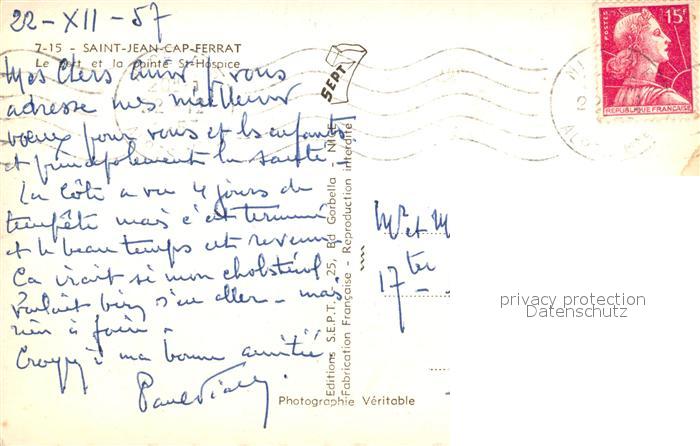 22-XII-57
7-15 - SAINT-JEAN-CAP-FERRAT
Le Port et la Pointe St-Hospice
Mes Chers amis, je vous
adresse mes meilleurs
voeux pour vous et les enfants
et principalement la santé
La côte a vu 4 jours de
tempête mais c'est terminé
et le beau temps est revenu
Ca irait si mon cholstérol
voulait bien s'en aller - mais
rien à faire.
Croyez à ma bonne amitié
Paul
SEPT
Editions S.E.P.T. - 25, Bd Gorbella - NICE
Fabrication Française - Reproduction interdite
Photographie Véritable
POSTES
15F
REPUBLIQUE FRANÇAISE
Mr et M
17 ter
privacy protection
Datenschutz